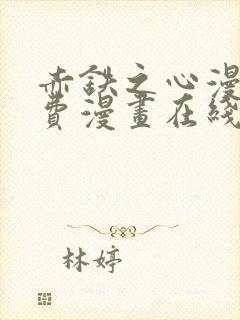 赤鉄之心漫
費漫畫在綫
林婷